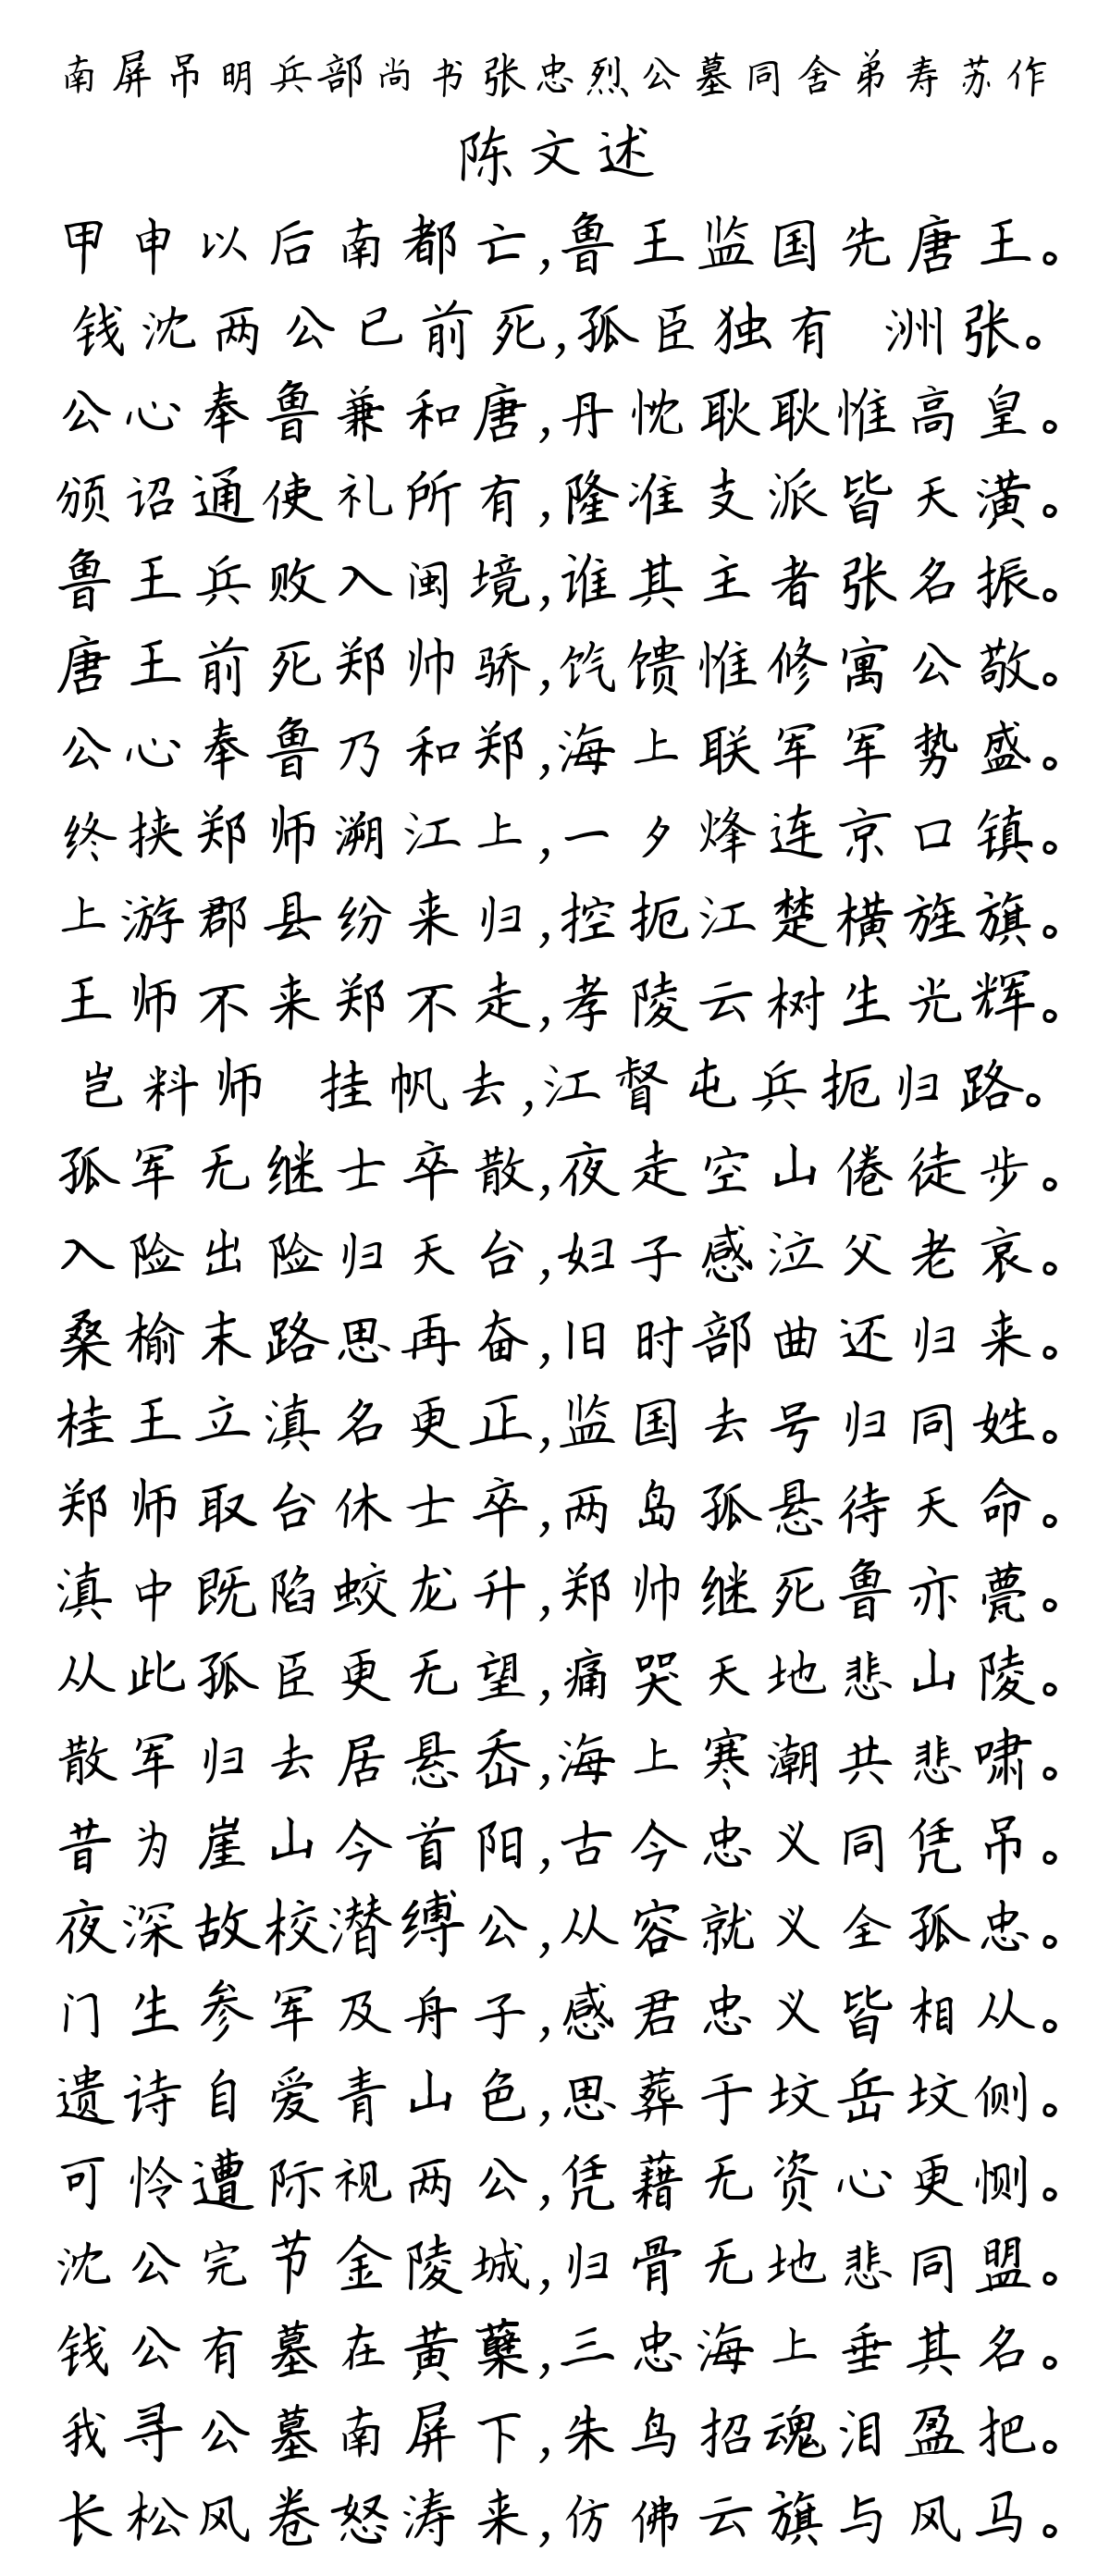 南屏吊明兵部尚书张忠烈公墓同舍弟寿苏作
陈文述
甲申以后南都亡,鲁王监国先唐王。
钱沈两公已前死,孤臣独有 洲张。
公心奉鲁兼和唐,丹忱耿耿惟高皇。
颁诏通使礼所有,隆准支派皆天潢。
鲁王兵败入闽境,谁其主者张名振。
唐王前死郑帅骄,饩馈惟修寓公敬。
公心奉鲁乃和郑,海上联军军势盛。
终挟郑师溯江上,一夕烽连京口镇。
上游郡县纷来归,控扼江楚横旌旗。
王师不来郑不走,孝陵云树生光辉。
岂料师 挂帆去,江督屯兵扼归路。
孤军无继士卒散,夜走空山倦徒步。
入险出险归天台,妇子感泣父老哀。
桑榆末路思再奋,旧时部曲还归来。
桂王立滇名更正,监国去号归同姓。
郑师取台休士卒,两岛孤悬待天命。
滇中既陷蛟龙升,郑帅继死鲁亦薨。
从此孤臣更无望,痛哭天地悲山陵。
散军归去居悬岙,海上寒潮共悲啸。
昔为崖山今首阳,古今忠义同凭吊。
夜深故校潜缚公,从容就义全孤忠。
门生参军及舟子,感君忠义皆相从。
遗诗自爱青山色,思葬于坟岳坟侧。
可怜遭际视两公,凭藉无资心更恻。
沈公完节金陵城,归骨无地悲同盟。
钱公有墓在黄蘖,三忠海上垂其名。
我寻公墓南屏下,朱鸟招魂泪盈把。
长松风卷怒涛来,仿佛云旗与风马。